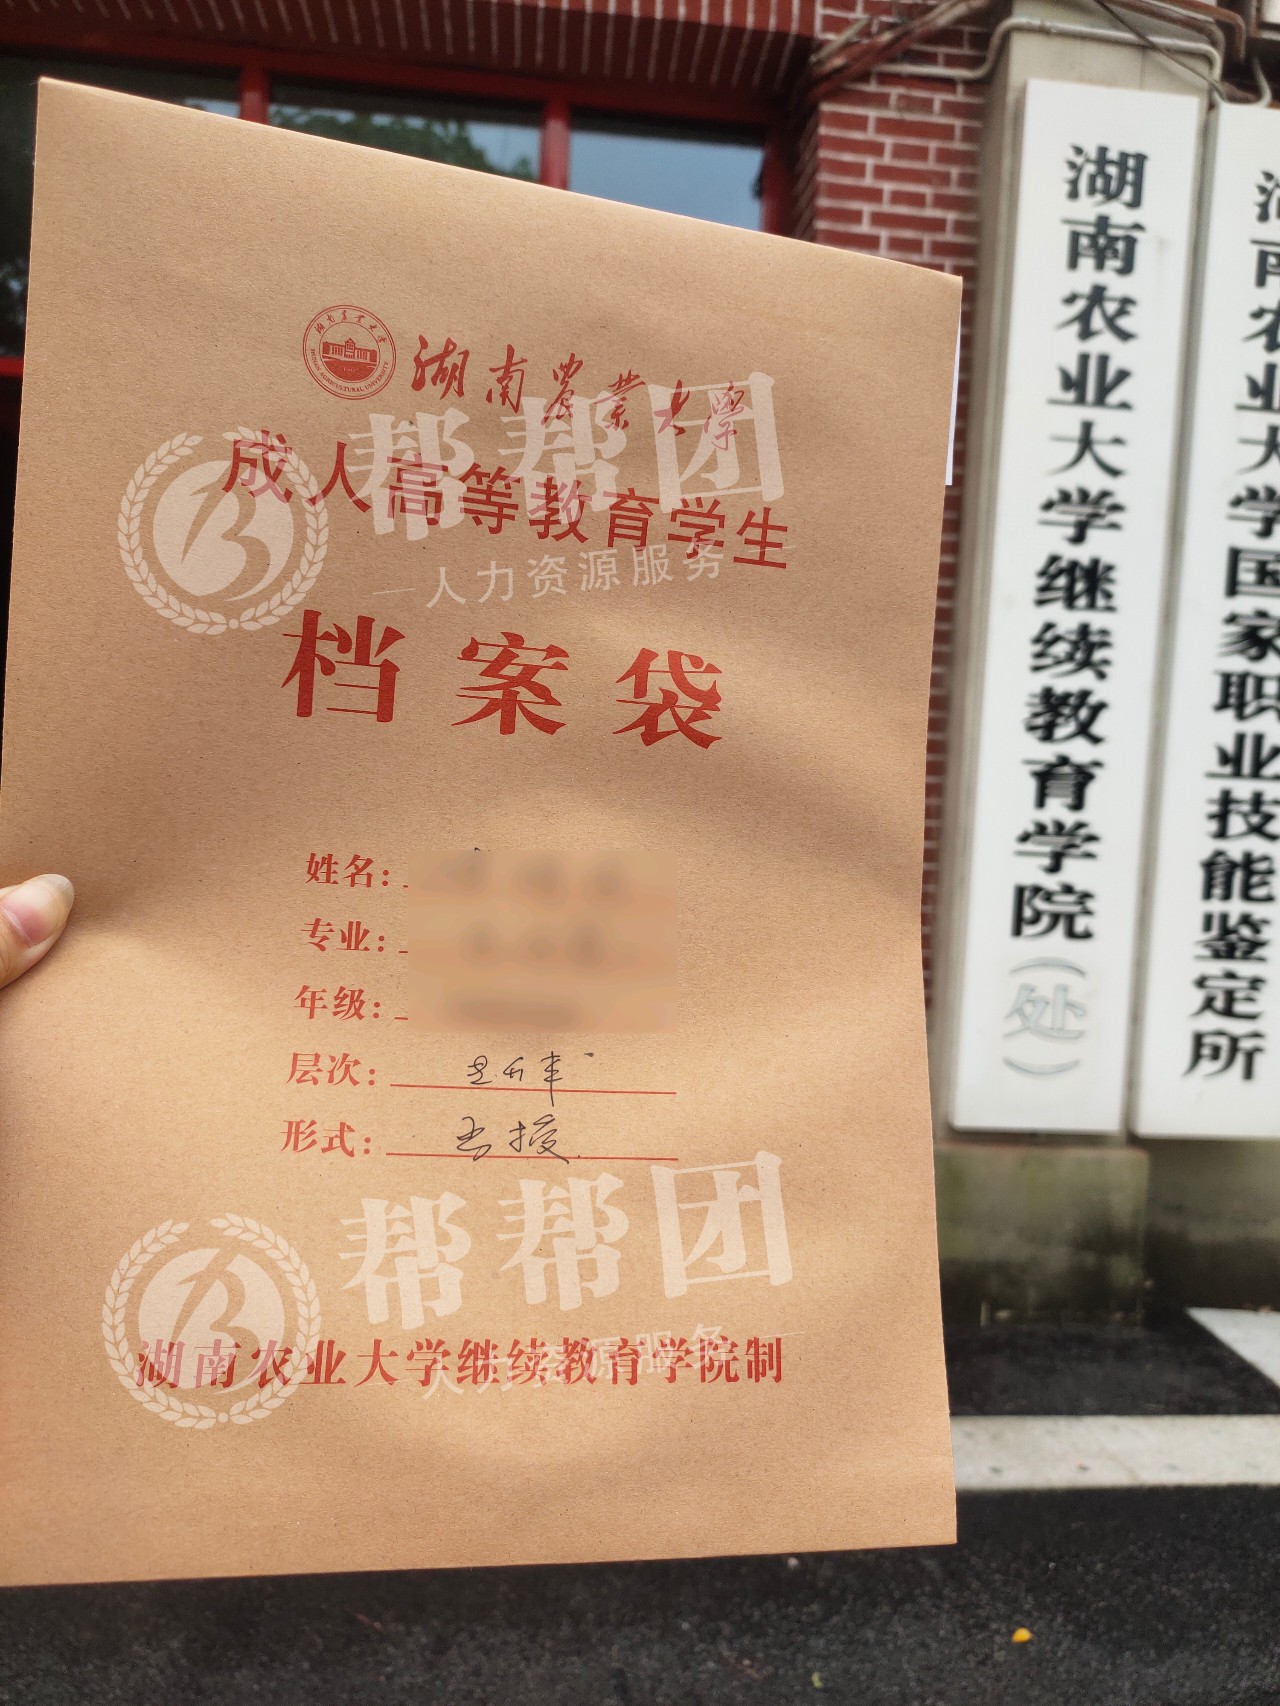 湖南農業大學
HUNAN AGRICULTURAL UNIVERSITY
成人高等教育学生
档案袋
姓名：
专业：
年级：
层次：专升本
形式：函授
湖南农业大学继续教育学院制
帮帮团
人力资源服务
帮帮团
人力资源服务
湖南农业大学继续教育学院（处）
湖南农业大学国家职业技能鉴定所